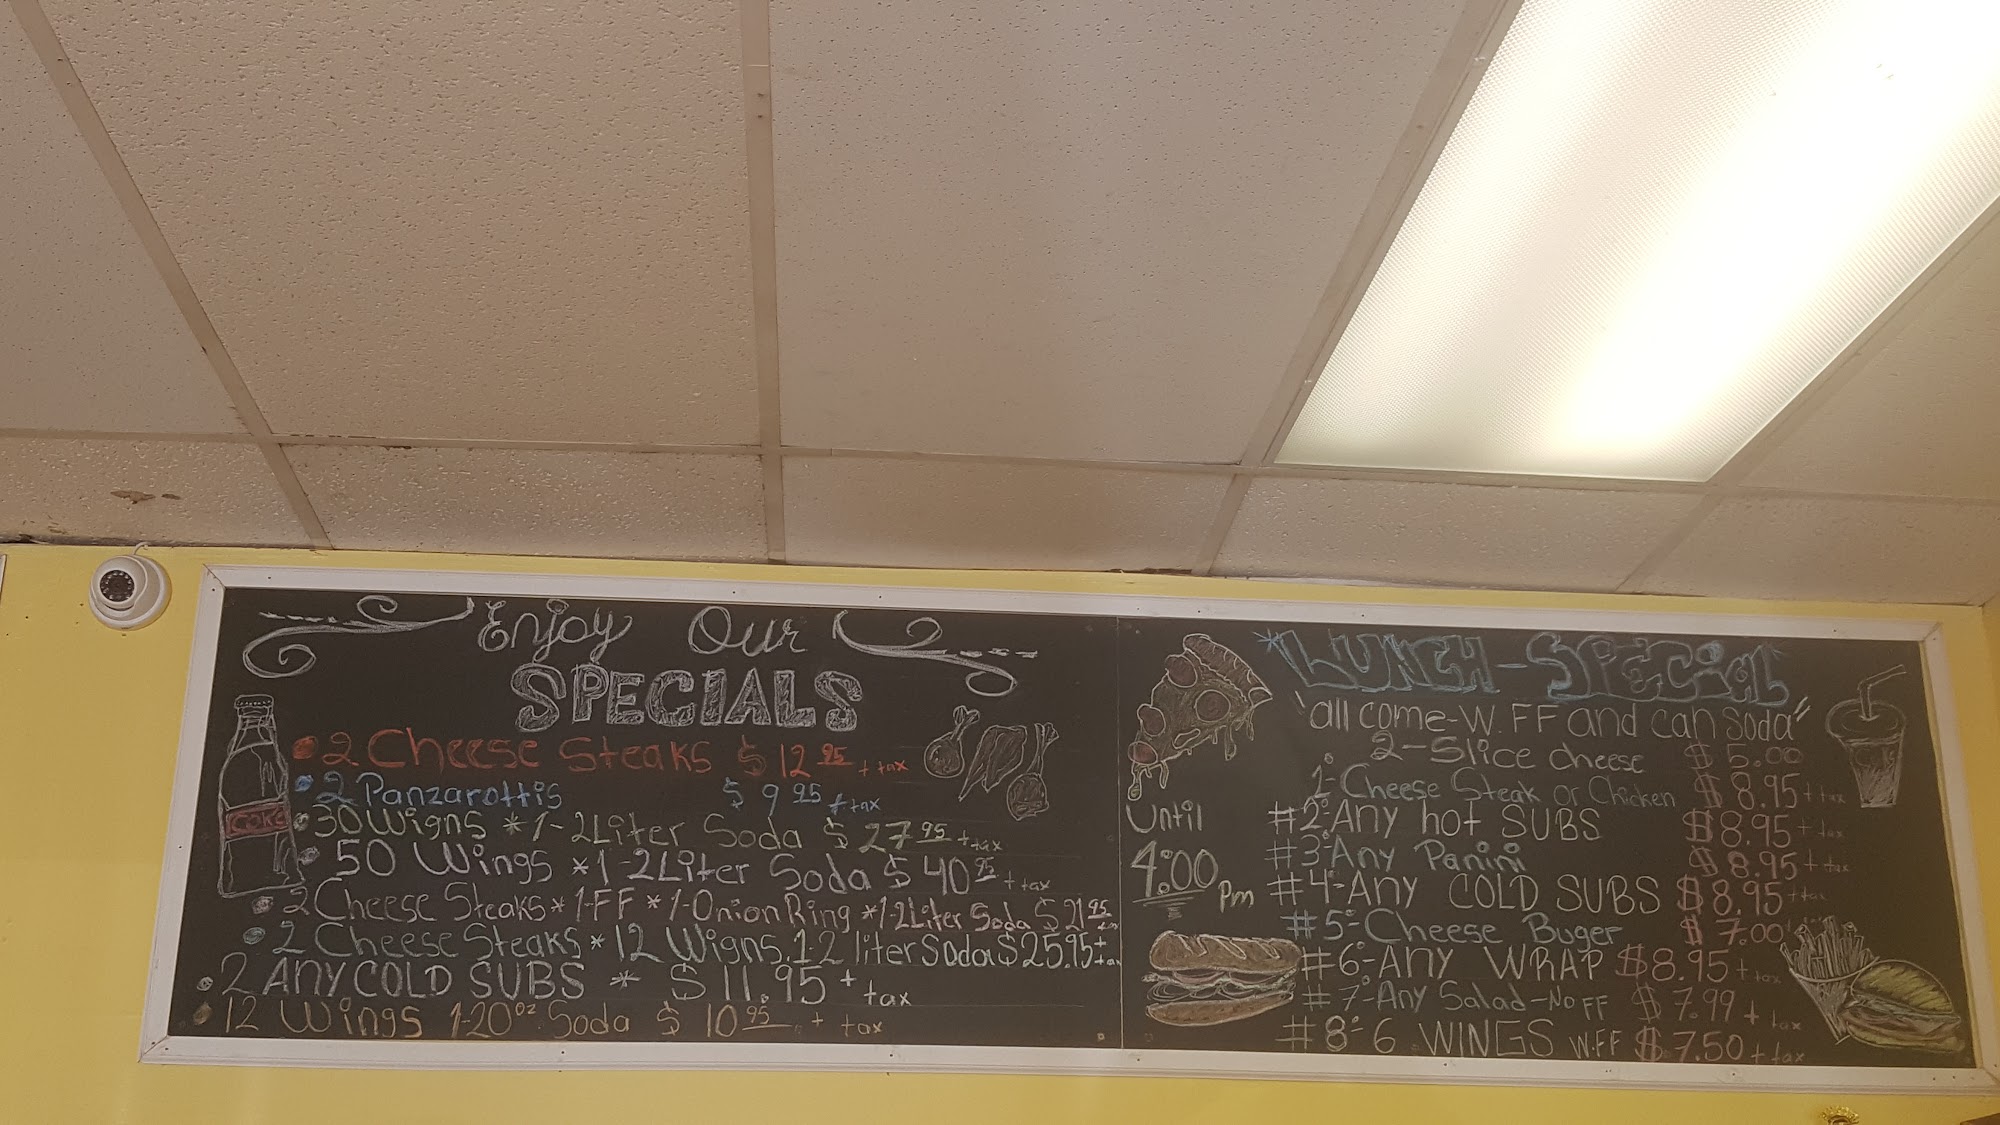 Enjoy Our
SPECIALS
2 Cheese Steaks $ 12 95 + tax
2 Panzarottis $ 9 95 + tax
30 Wigns * 1-2 Liter Soda $ 27 95 + tax
50 Wings * 1-2 Liter Soda $ 40 95 + tax
2 Cheese Steaks * 1-FF * 1-Onion Ring * 1-2 Liter Soda $ 21 95
2 Cheese Steaks * 12 Wigns. 1-2 liter Soda $ 25.95 +
2 ANY COLD SUBS * $ 11.95 + tax
12 Wings 1-20 oz. Soda $ 10 95 + tax
COKE
*LUNCH-SPECIAL
"all come-W. FF and can Soda"
2-Slice cheese $ 5.00
1- Cheese Steak or Chicken $ 8.95 + tax
#2- Any hot SUBS $ 8.95 + tax
#3- Any Panini $ 8.95 + tax
#4- Any COLD SUBS $ 8.95 + tax
#5- Cheese Buger $ 7.00
#6- Any WRAP $ 8.95 + tax
#7- Any Salad-No FF $ 7.99 + tax
#8- 6 WINGS W.FF $ 7.50 + tax
Until
4:00 Pm